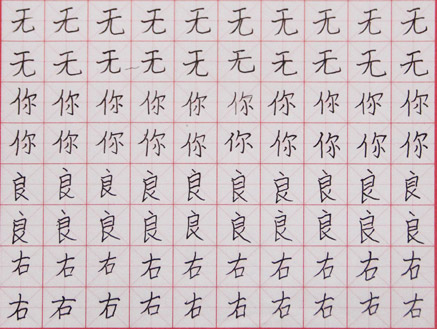 无无无无无无无无无无
无无无无无无无无无无
你你你你你你你你你你
你你你你你你你你你你
良良良良良良良良良良
良良良良良良良良良良
右右右右右右右右右右
右右右右右右右右右右